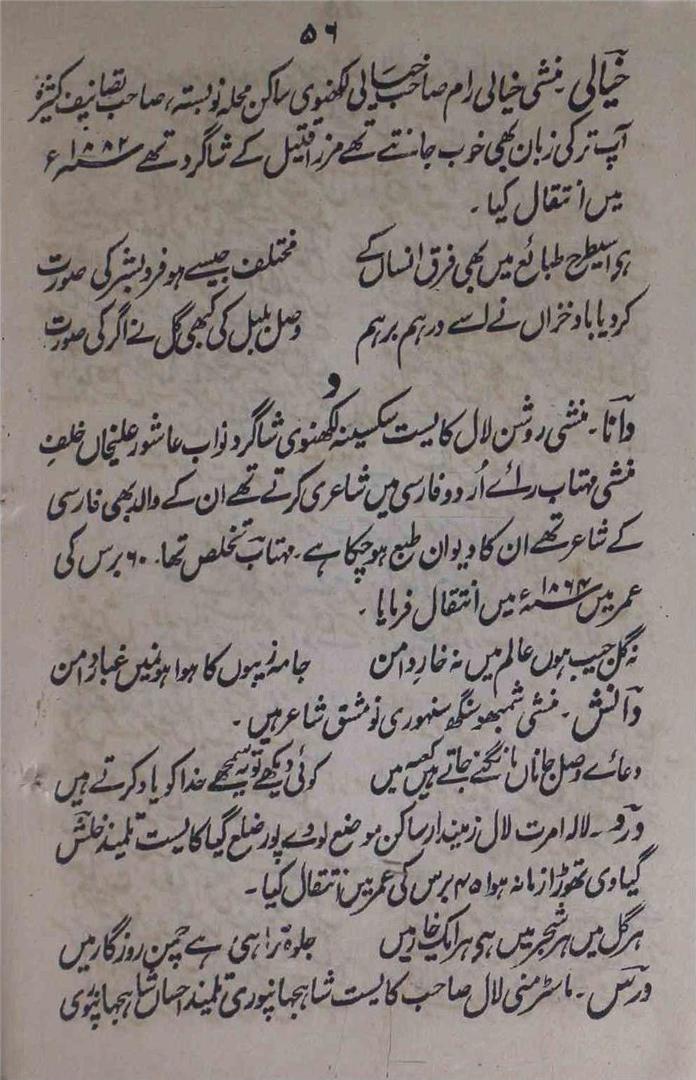 ۵۶
خیالی۔ منشی خیالی رام صاحب خیالی لکھنوی ساکن محلہ نوبستہ، صاحب تصانیف کثیرہ
آپ ترکی زبان بھی خوب جانتے تھے مرزا قتیل کے شاگرد تھے ۱۸۸۲ء
میں انتقال کیا۔
ہے اسیطرح طبائع میں بھی فرق انساں کے مختلف جیسے ہو فرد بشر کی صورت
کر دیا باد خزاں نے اسے درہم برہم وصل بلبل کی کبھی گل نے اگر کی صورت
د
دانا۔ منشی روشن لال کایست سکسینہ لکھنوی شاگرد نواب عاشور علیخاں خلف
منشی مہتاب رائے اُردو فارسی میں شاعری کرتے تھے ان کے والد بھی فارسی
کے شاعر تھے ان کا دیوان طبع ہو چکا ہے۔ مہتاب تخلص تھا۔ ۶۰ برس کی
عمر میں ۱۸۶۴ء میں انتقال فرمایا۔
نہ گل جیب ہوں عالم میں نہ خار دامن جامہ زیبوں کا ہوا ہوں میں غبار دامن
دانش۔ منشی شمبھو سنگھ سنہوری نو مشق شاعر ہیں۔
دعائے وصل جاناں مانگنے جاتے ہیں کعبہ میں کوئی دیکھے تو یہ سمجھے خدا کو یاد کرتے ہیں
درد۔ لالہ امرت لال زمیندار ساکن موضع اودے پور ضلع گیا کایست تلمیذ خلش
گیاوی تھوڑا زمانہ ہوا ۴۵ برس کی عمر میں انتقال کیا۔
ہر گل میں ہر شجر میں ہی ہر ایک خار میں جلوہ ترا ہی ہے چمن روزگار میں
درس۔ ماسٹر منی لال صاحب کایست شاہجہانپوری تلمیذ احسان شاہجہانپوری